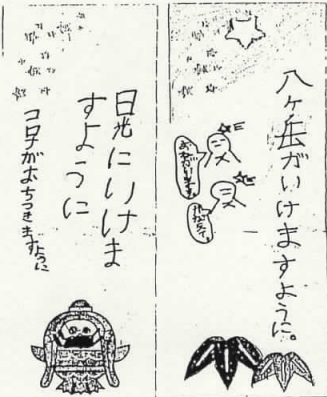 八ヶ岳がいけますように。
おねがいします
日光にいけま
すように
コロナがおちつきますように